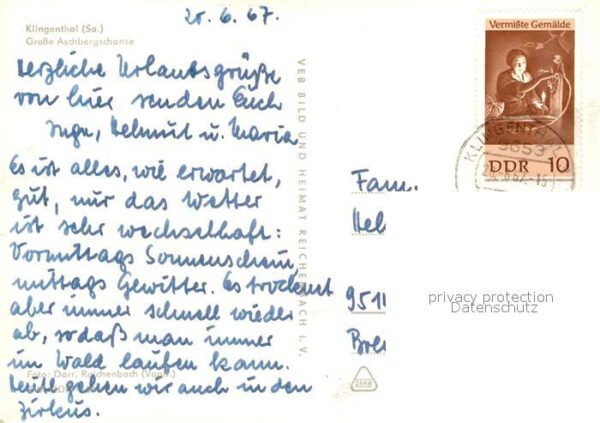 20.6.67.
Klingenthal (Sa.)
Große Aschbergschanze
Herzliche Urlaubsgrüße
von hier senden Euch
Inge, Helmut u. Maria
Es ist alles, wie erwartet,
gut, nur das Wetter
ist sehr wechselhaft:
Vormittags Sonnenschein
mittags Gewitter. Es trocknet
aber immer schnell wieder
ab, sodaß man immer
im Wald laufen kann.
Foto: Darr, Reichenbach (Vogtl.)
Heute gehen wir auch in den
Zirkus.
VEB BILD UND HEIMAT REICHENBACH I. V.
Vermißte Gemälde
DDR 10
KLINGENTHAL
9653
Fam.
Hel
9511
privacy protection
Datenschutz